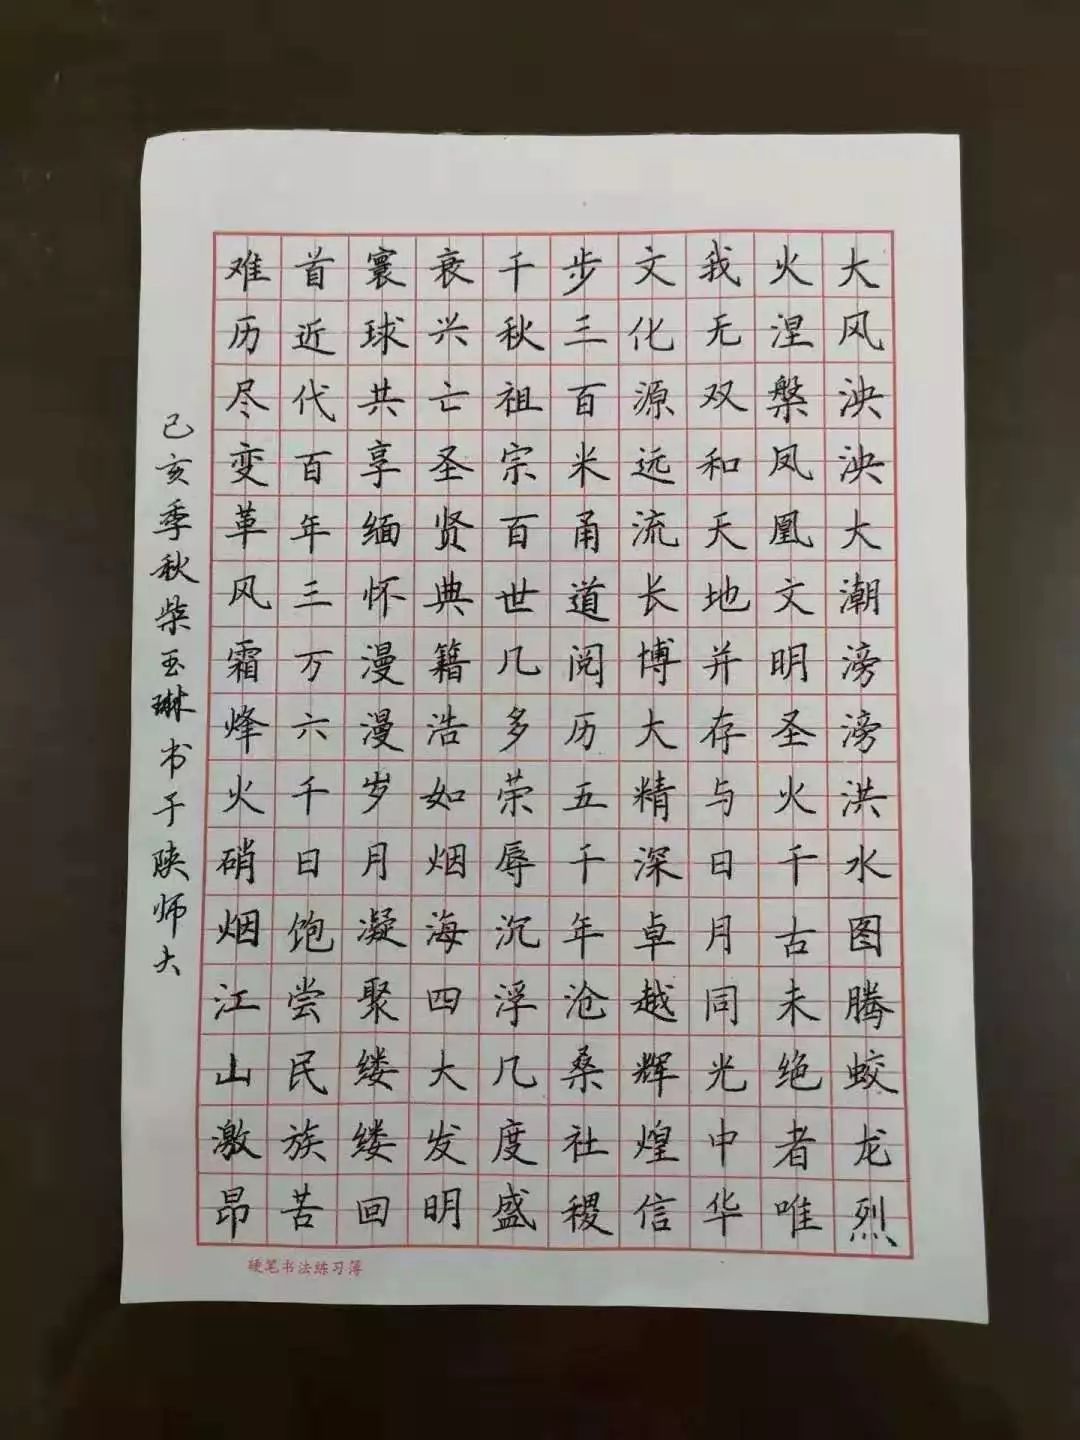 大风泱泱大潮滂滂洪水图腾蛟龙烈
火涅槃凤凰文明圣火千古未绝者唯
我无双和天地并存与日月同光中华
文化源远流长博大精深卓越辉煌信
步三百米甬道阅历五千年沧桑社稷
千秋祖宗百世几多荣辱沉浮几度盛
衰兴亡圣贤典籍浩如烟海四大发明
寰球共享缅怀漫漫岁月凝聚缕缕回
首近代百年三万六千日饱尝民族苦
难历尽变革风霜烽火硝烟江山激昂
己亥季秋柴玉琳书于陕师大
硬笔书法练习簿